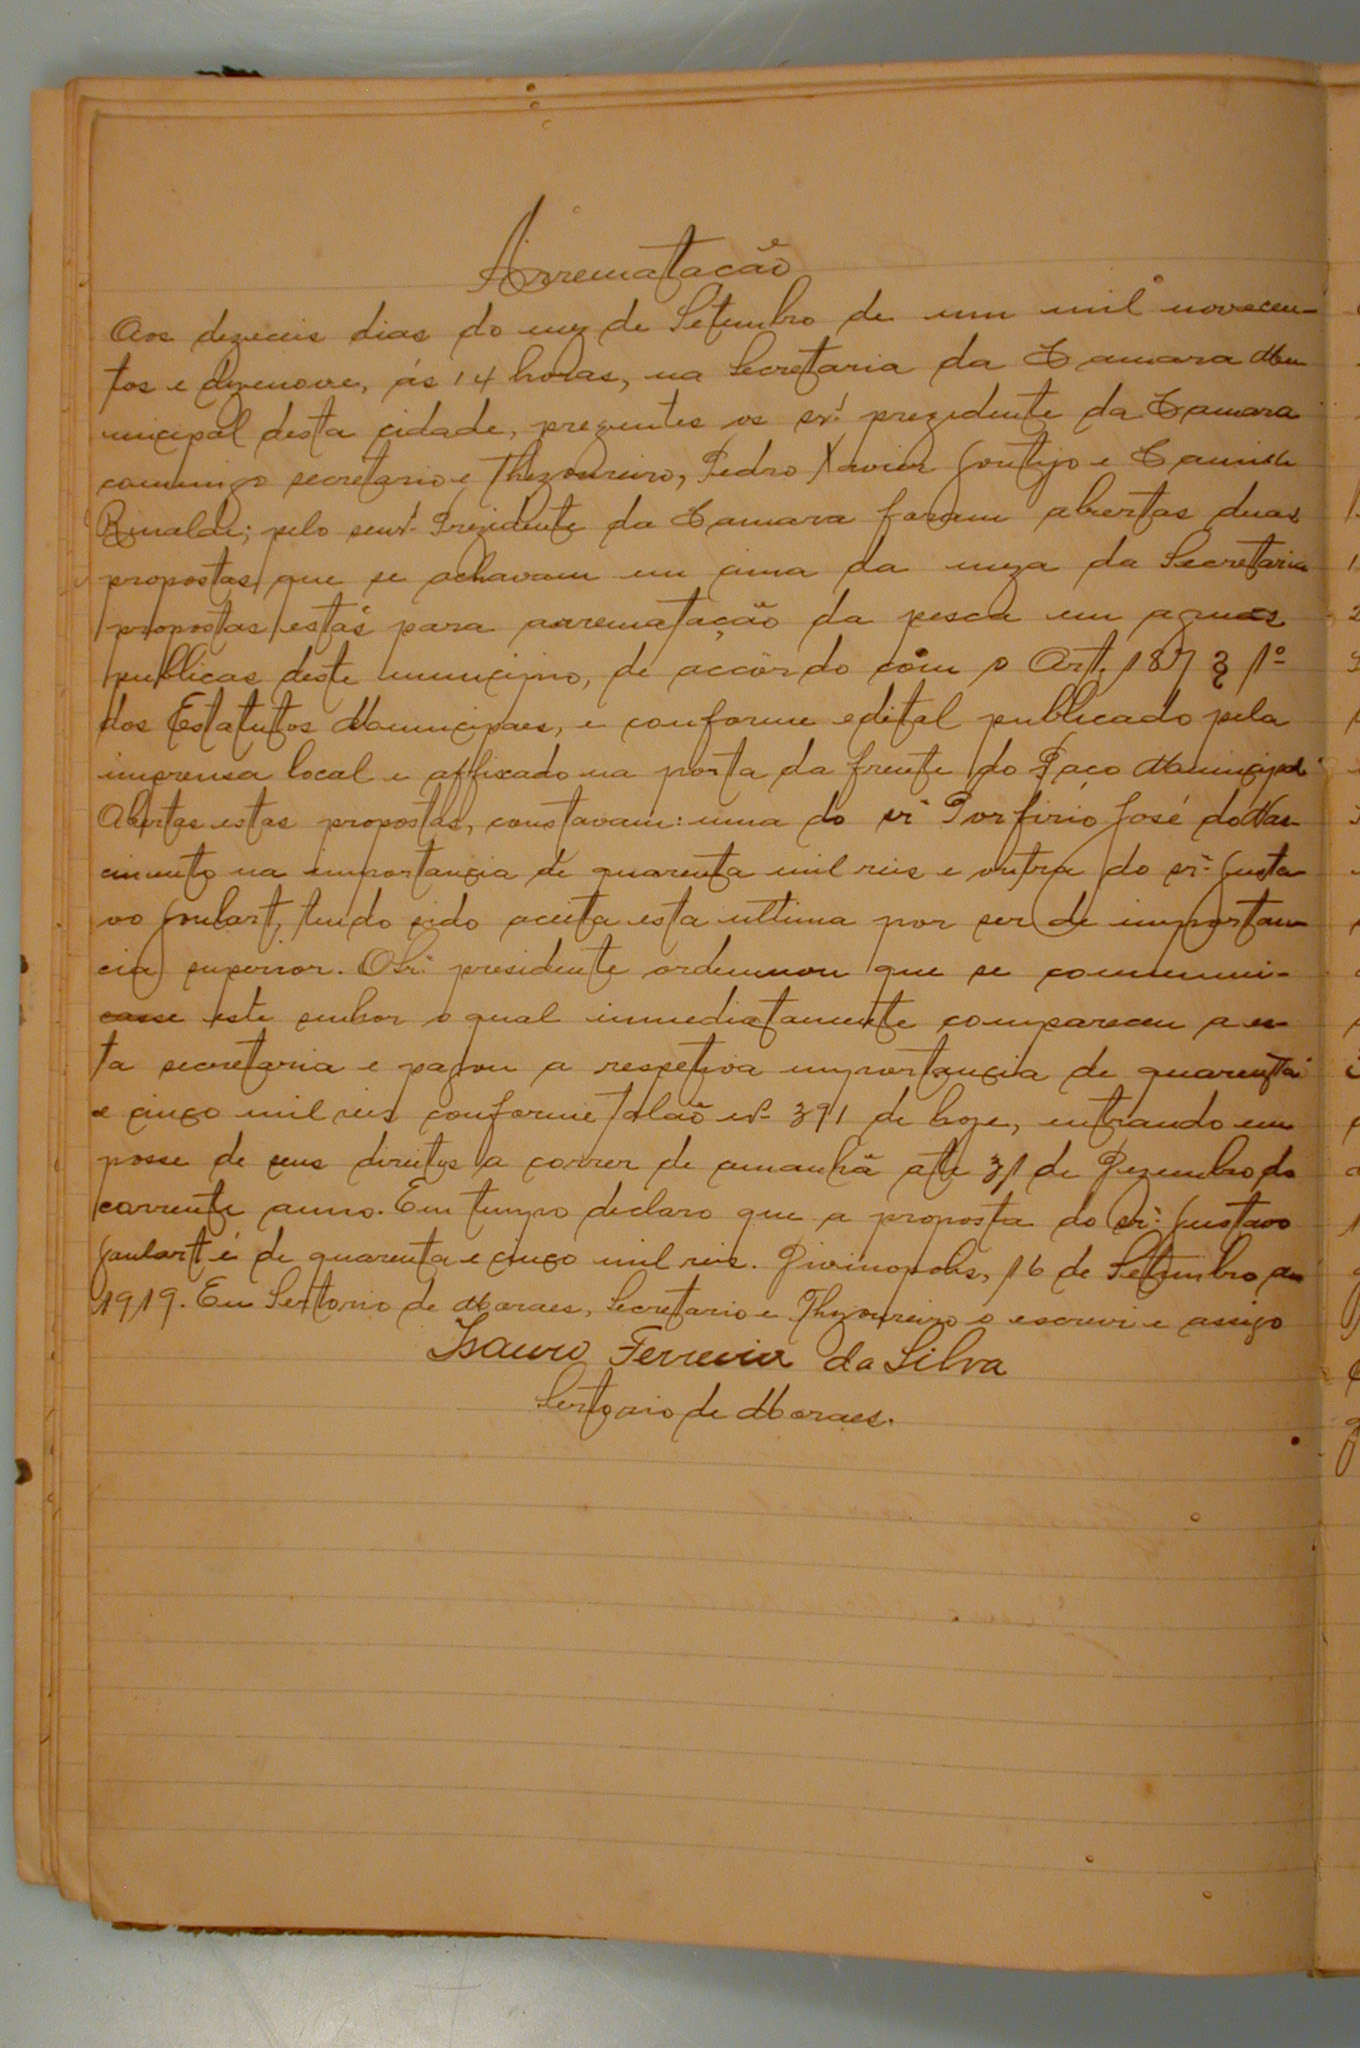 Arrematacão
Aos dezeceis dias do mez de Setembro de um mil novecen-
tos e dezenove, ás 14 horas, na Secretaria da Camara Mu
nicipal desta cidade, prezentes os snr.s prezidente da Camara
commigo secretario e Thezoureiro, Pedro Xavier Gontijo e Camillo
Rinaldi; pelo senr. Prezidente da Camara foram abertas duas
propostas que se achavam em cima da meza da Secretaria
propostas estas para arrematação da pesca em aguas
publicas deste municipio, de accôrdo com o Art. 187 § 1º
dos Estatutos Municipaes, e conforme edital publicado pela
imprensa local e affixado na porta da frente do Paço Municipal
Abertas estas propostas, constavam: uma do sr. Porfirio José do Nas-
cimento na importancia de quarenta mil reis e outra do sr. Gusta
vo Goulart, tendo sido aceita esta ultima por ser de importan
cia superior. O Sr. presidente ordennou que se communi-
casse este senhor o qual immediatamente compareceu a es-
ta secretaria e pagou a respetiva importancia de quarenta
e cinco mil reis conforme talaõ nº 391 de hoje, entrando em
posse de seus direitos a correr de amanhã ate 31 de Dezembro do
corrente anno. Em tempo declaro que a proposta do sr. Gustavo
Goulart é de quarenta e cinco mil reis. Divinopolis, 16 de Setembro de
1919. Eu Sertorio de Moraes, Secretario e Thezoureiro o escrevi e assigo
Isauro Ferreira da Silva
Sertorio de Moraes.